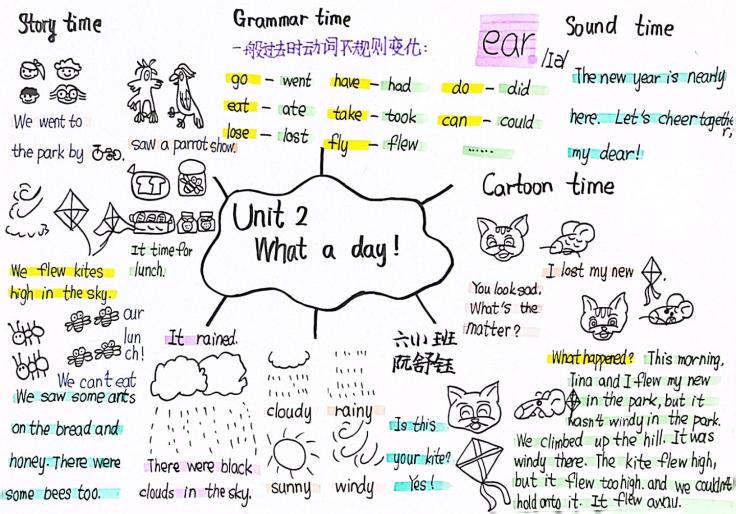 Story time
We went to
the park by
saw a parrot show.
We flew kites
high in the sky.
It time for
lunch.
our
lun
ch!
We can't eat
We saw some ants
on the bread and
honey. There were
some bees too.
Grammar time
一般过去时动词不规则变化:
go – went have – had do – did
eat – ate take – took can – could
lose – lost fly – flew ......
ear /ɪə/
Sound time
The new year is nearly
here. Let's cheer togethe
r,
my dear!
Unit 2
What a day!
It rained.
There were black
clouds in the sky.
cloudy rainy
sunny windy
Cartoon time
I lost my new .
You look sad.
What's the
matter?
What happened? This morning,
Tina and I flew my new
in the park, but it
wasn't windy in the park.
We climbed up the hill. It was
windy there. The kite flew high,
but it flew too high. and we couldn't
hold onto it. It flew away.
Is this
your kite?
Yes!
阮舒钰